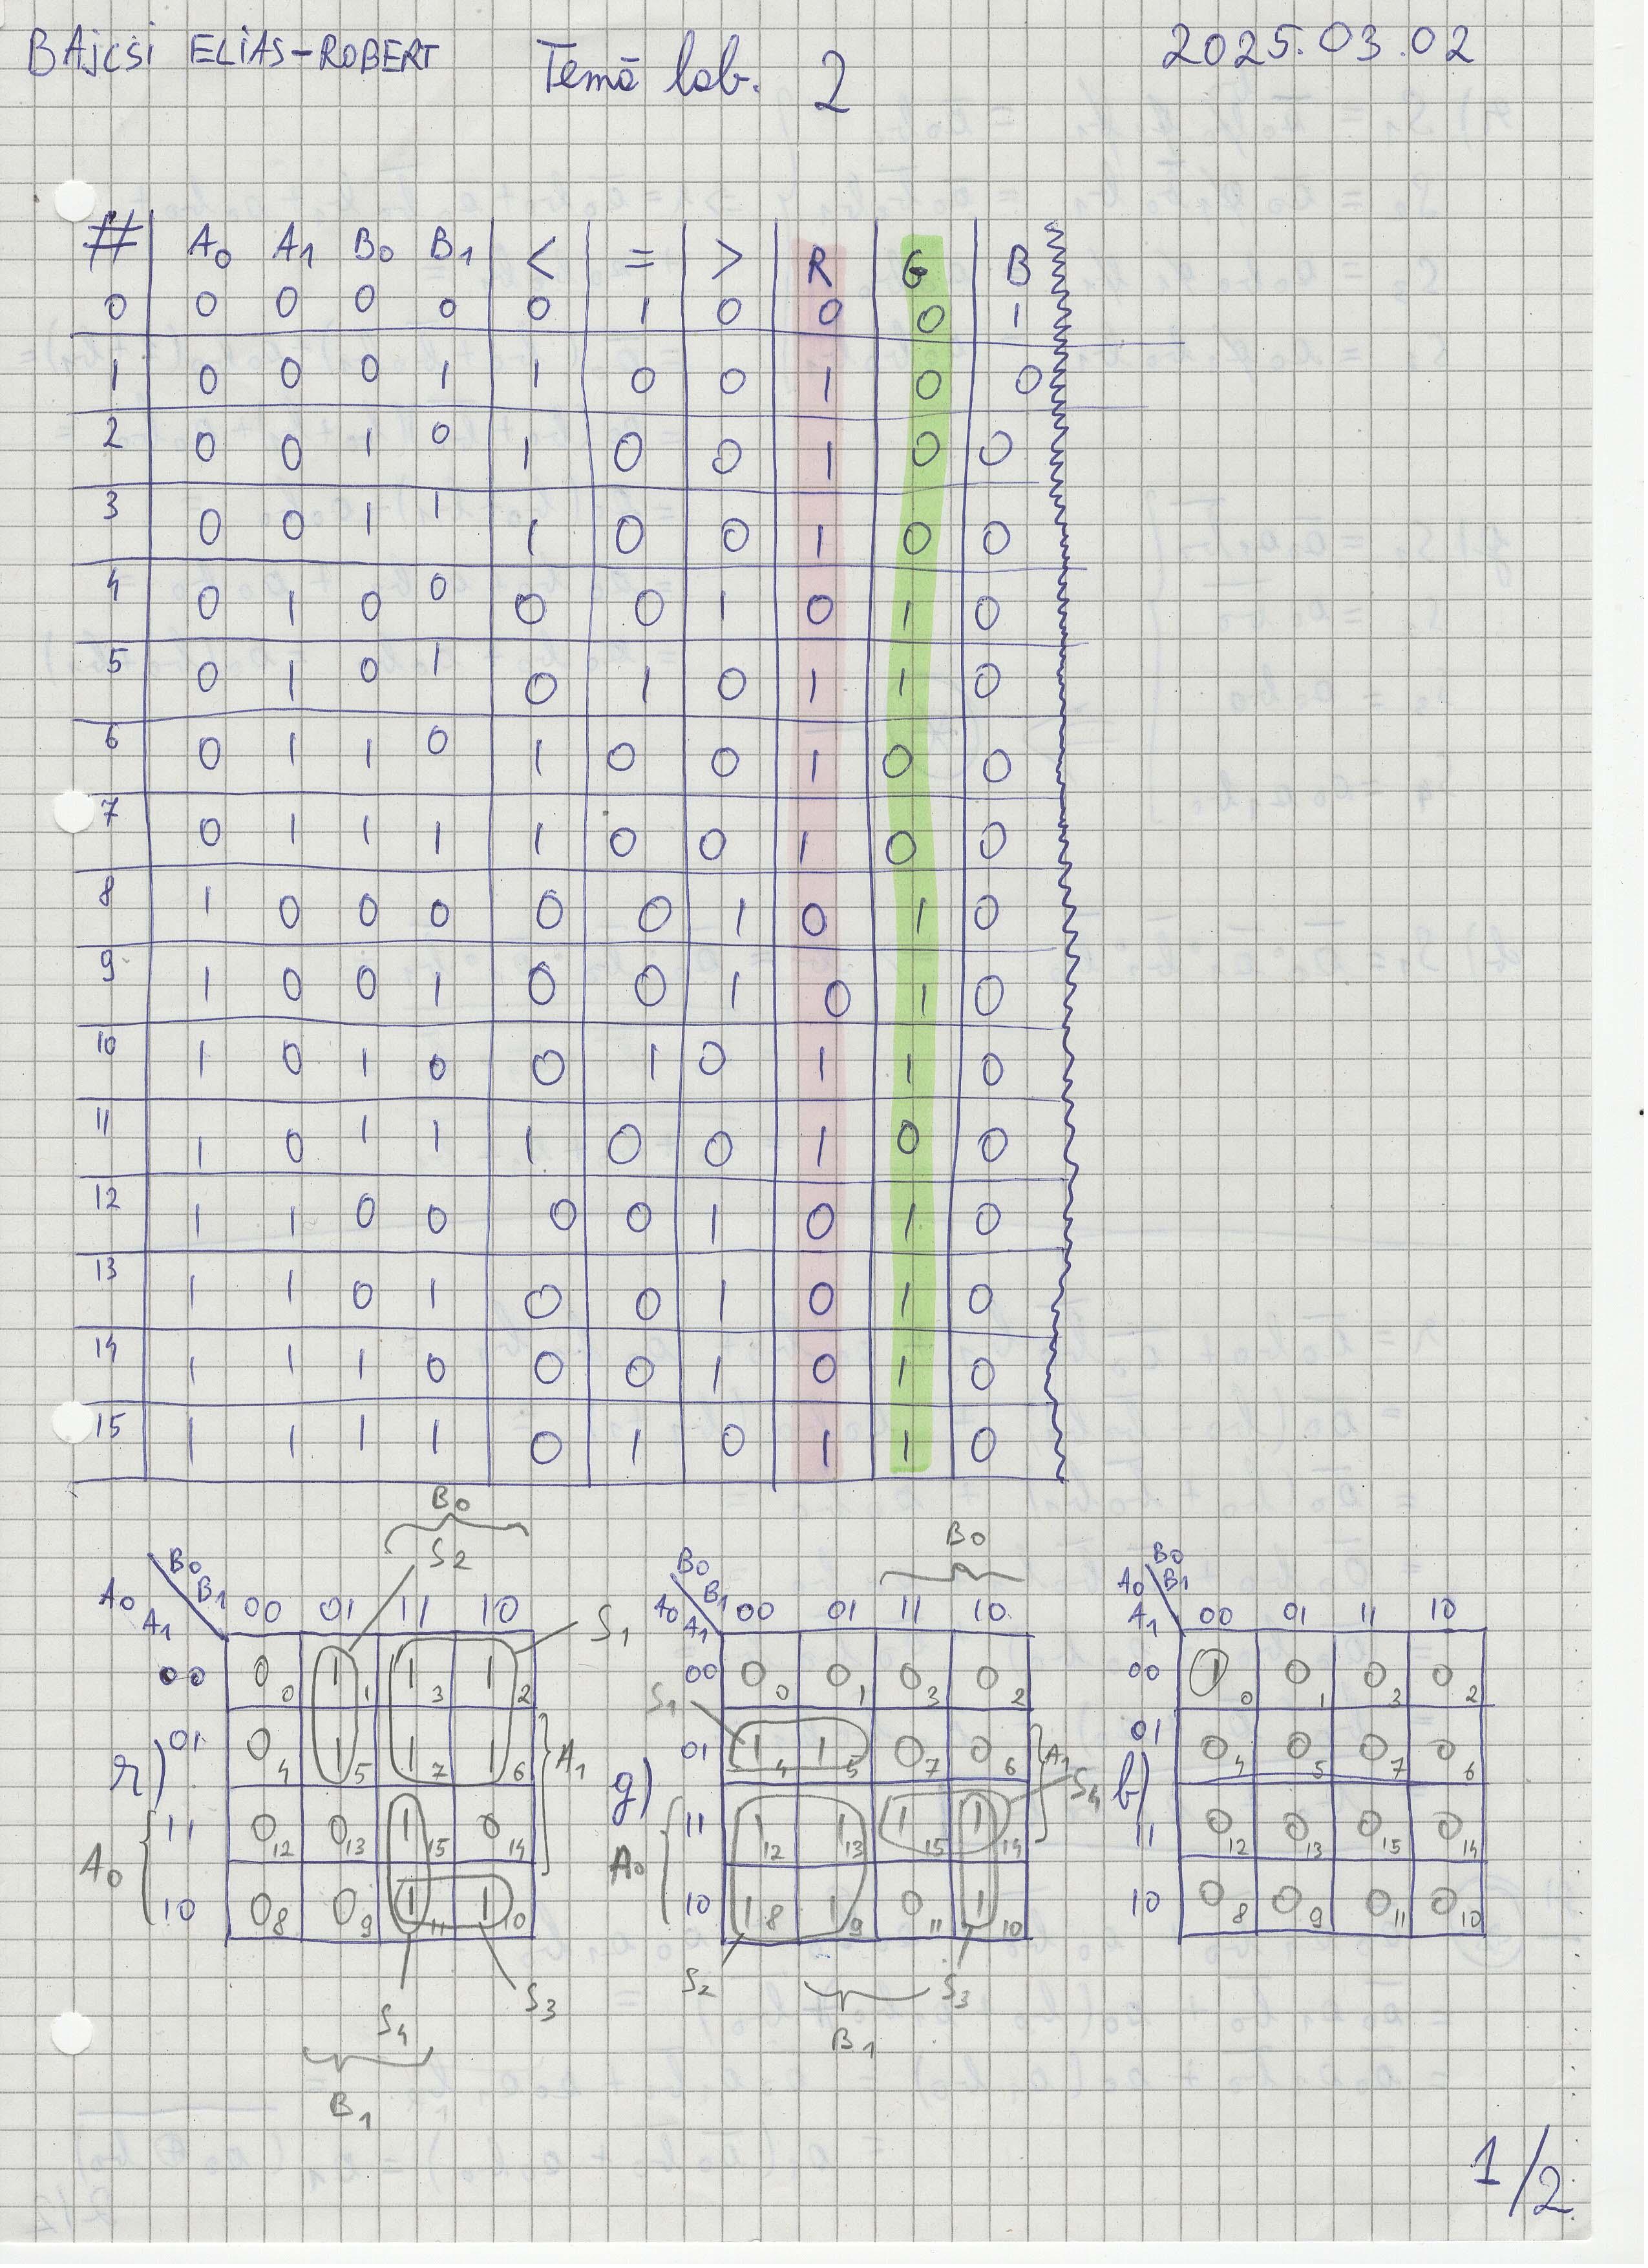 BAjCSi ELiAS-ROBERT Temā lab. 2 2025.03.02
# A0 A1 B0 B1 < = > R G B
0 0 0 0 0 0 1 0 0 0 1
1 0 0 0 1 1 0 0 1 0 0
2 0 0 1 0 1 0 0 1 0 0
3 0 0 1 1 1 0 0 1 0 0
4 0 1 0 0 0 0 1 0 1 0
5 0 1 0 1 0 1 0 1 1 0
6 0 1 1 0 1 0 0 1 0 0
7 0 1 1 1 1 0 0 1 0 0
8 1 0 0 0 0 0 1 0 1 0
9 1 0 0 1 0 0 1 0 1 0
10 1 0 1 0 0 1 0 1 1 0
11 1 0 1 1 1 0 0 1 0 0
12 1 1 0 0 0 0 1 0 1 0
13 1 1 0 1 0 0 1 0 1 0
14 1 1 1 0 0 0 1 0 1 0
15 1 1 1 1 0 1 0 1 1 0
B0
S2
B0 B1
A0 A1
00 01 11 10 S1
00 0 0 1 1 1 3 1 2
r) 01 0 4 1 5 1 7 1 6 A1
A0 11 0 12 0 13 1 15 0 14
10 0 8 0 9 1 11 1 10
S4 S3
B1
B0
B0 B1
A0 A1
00 01 11 10
00 0 0 0 1 0 3 0 2
S1
g) 01 1 4 1 5 0 7 0 6 A1
S4
A0 11 1 12 1 13 1 15 1 14
10 1 8 1 9 0 11 1 10
S2 S3
B1
B0 B1
A0 A1
00 01 11 10
00 1 0 0 1 0 3 0 2
b) 01 0 4 0 5 0 7 0 6
11 0 12 0 13 0 15 0 14
10 0 8 0 9 0 11 0 10
1/2